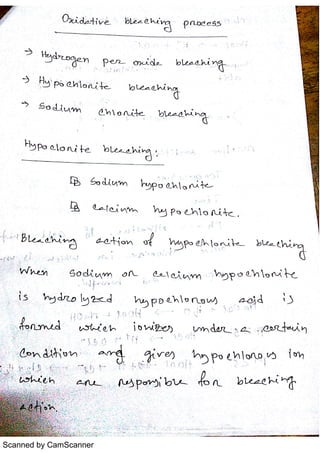 Oxidative bleaching process
→ Hydrogen per oxide bleaching
→ Hypochlorite bleaching
→ Sodium chlorite bleaching
Hypoclorite bleaching:
Sodium hypochlorite
Calcium hypochlorite.
Bleaching action of hypochlorite bleaching
When Sodium or Calcium hypochlorite
is hydrolyzed hypochlorous acid is
formed which ionizes under a certain
condition and gives hypochlorous ion
which are responsible for bleaching
action.
Scanned by CamScanner